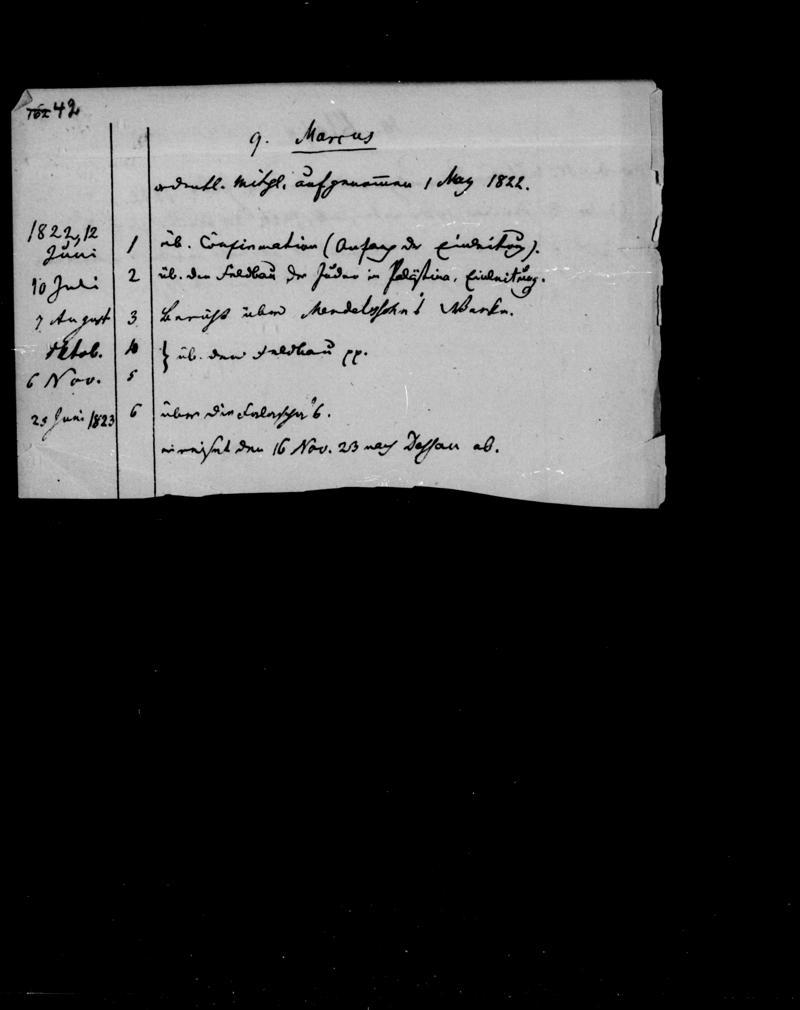 42
9. Marcus
ordentl. Mitgl. aufgenommen 1 May 1822.
1822, 12 Juni 1 üb. Confirmation (Anfang der Einleitung).
10 Juli 2 üb. den Feldbau der Juden in Palästina, Einleitung.
7 August 3 Bericht über Mendelssohn's Werke.
Oktob. 4 } üb. den Feldbau pp.
6 Nov. 5
25 Juni 1823 6 über die Falascha's.
er reiset den 16 Nov. 23 nach Dessau ab.